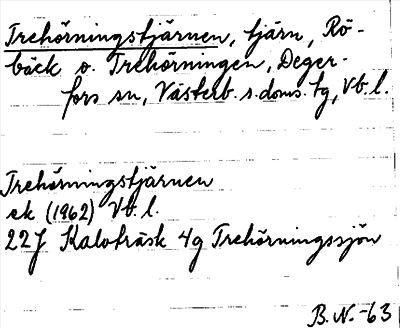 Trehörningstjärnen, tjärn, Rö-
bäck o. Trehörningen, Deger-
fors sn, Västerb. s. doms. tg, Vb. l.
Trehörningstjärnen
ek (1962) Vb. l.
22J Kalvträsk 4g Trehörningssjön
B. N. -63